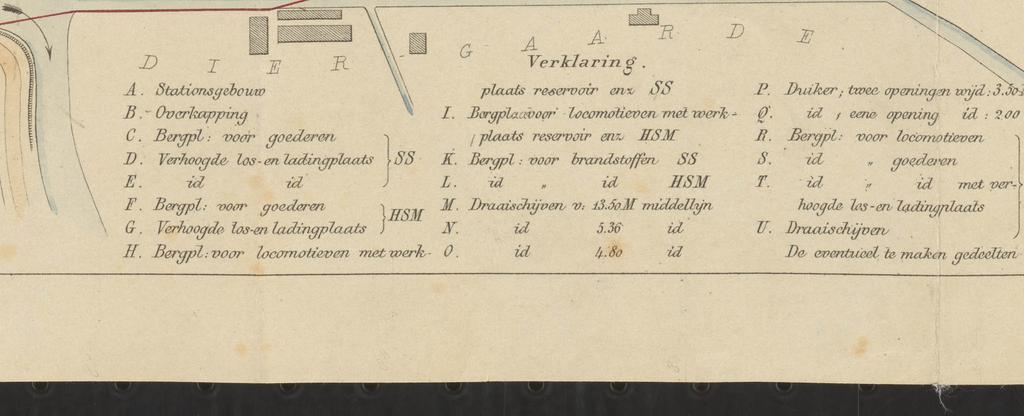 DIERGAARDE
Verklaring.
A. Stationsgebouw
B. Overkapping
C. Bergpl: voor goederen
D. Verhoogde los-en ladingplaats } SS
E. id id
F. Bergpl: voor goederen
G. Verhoogde los-en ladingplaats } HSM
H. Bergpl: voor locomotieven met werk-
plaats reservoir enz SS
I. Bergpl voor locomotieven met werk-
plaats reservoir enz HSM
K. Bergpl: voor brandstoffen SS
L. id „ id HSM
M. Draaischijven v: 13.50M middellijn
N. id 5.36 id
O. id 4.80 id
P. Duiker; twee openingen wijd: 3.50
Q. id ; eene opening id: 200
R. Bergpl: voor locomotieven
S. id „ goederen
T. id „ id met ver-
hoogde los-en ladingplaats
U. Draaischijven
De eventueel te maken gedeelten